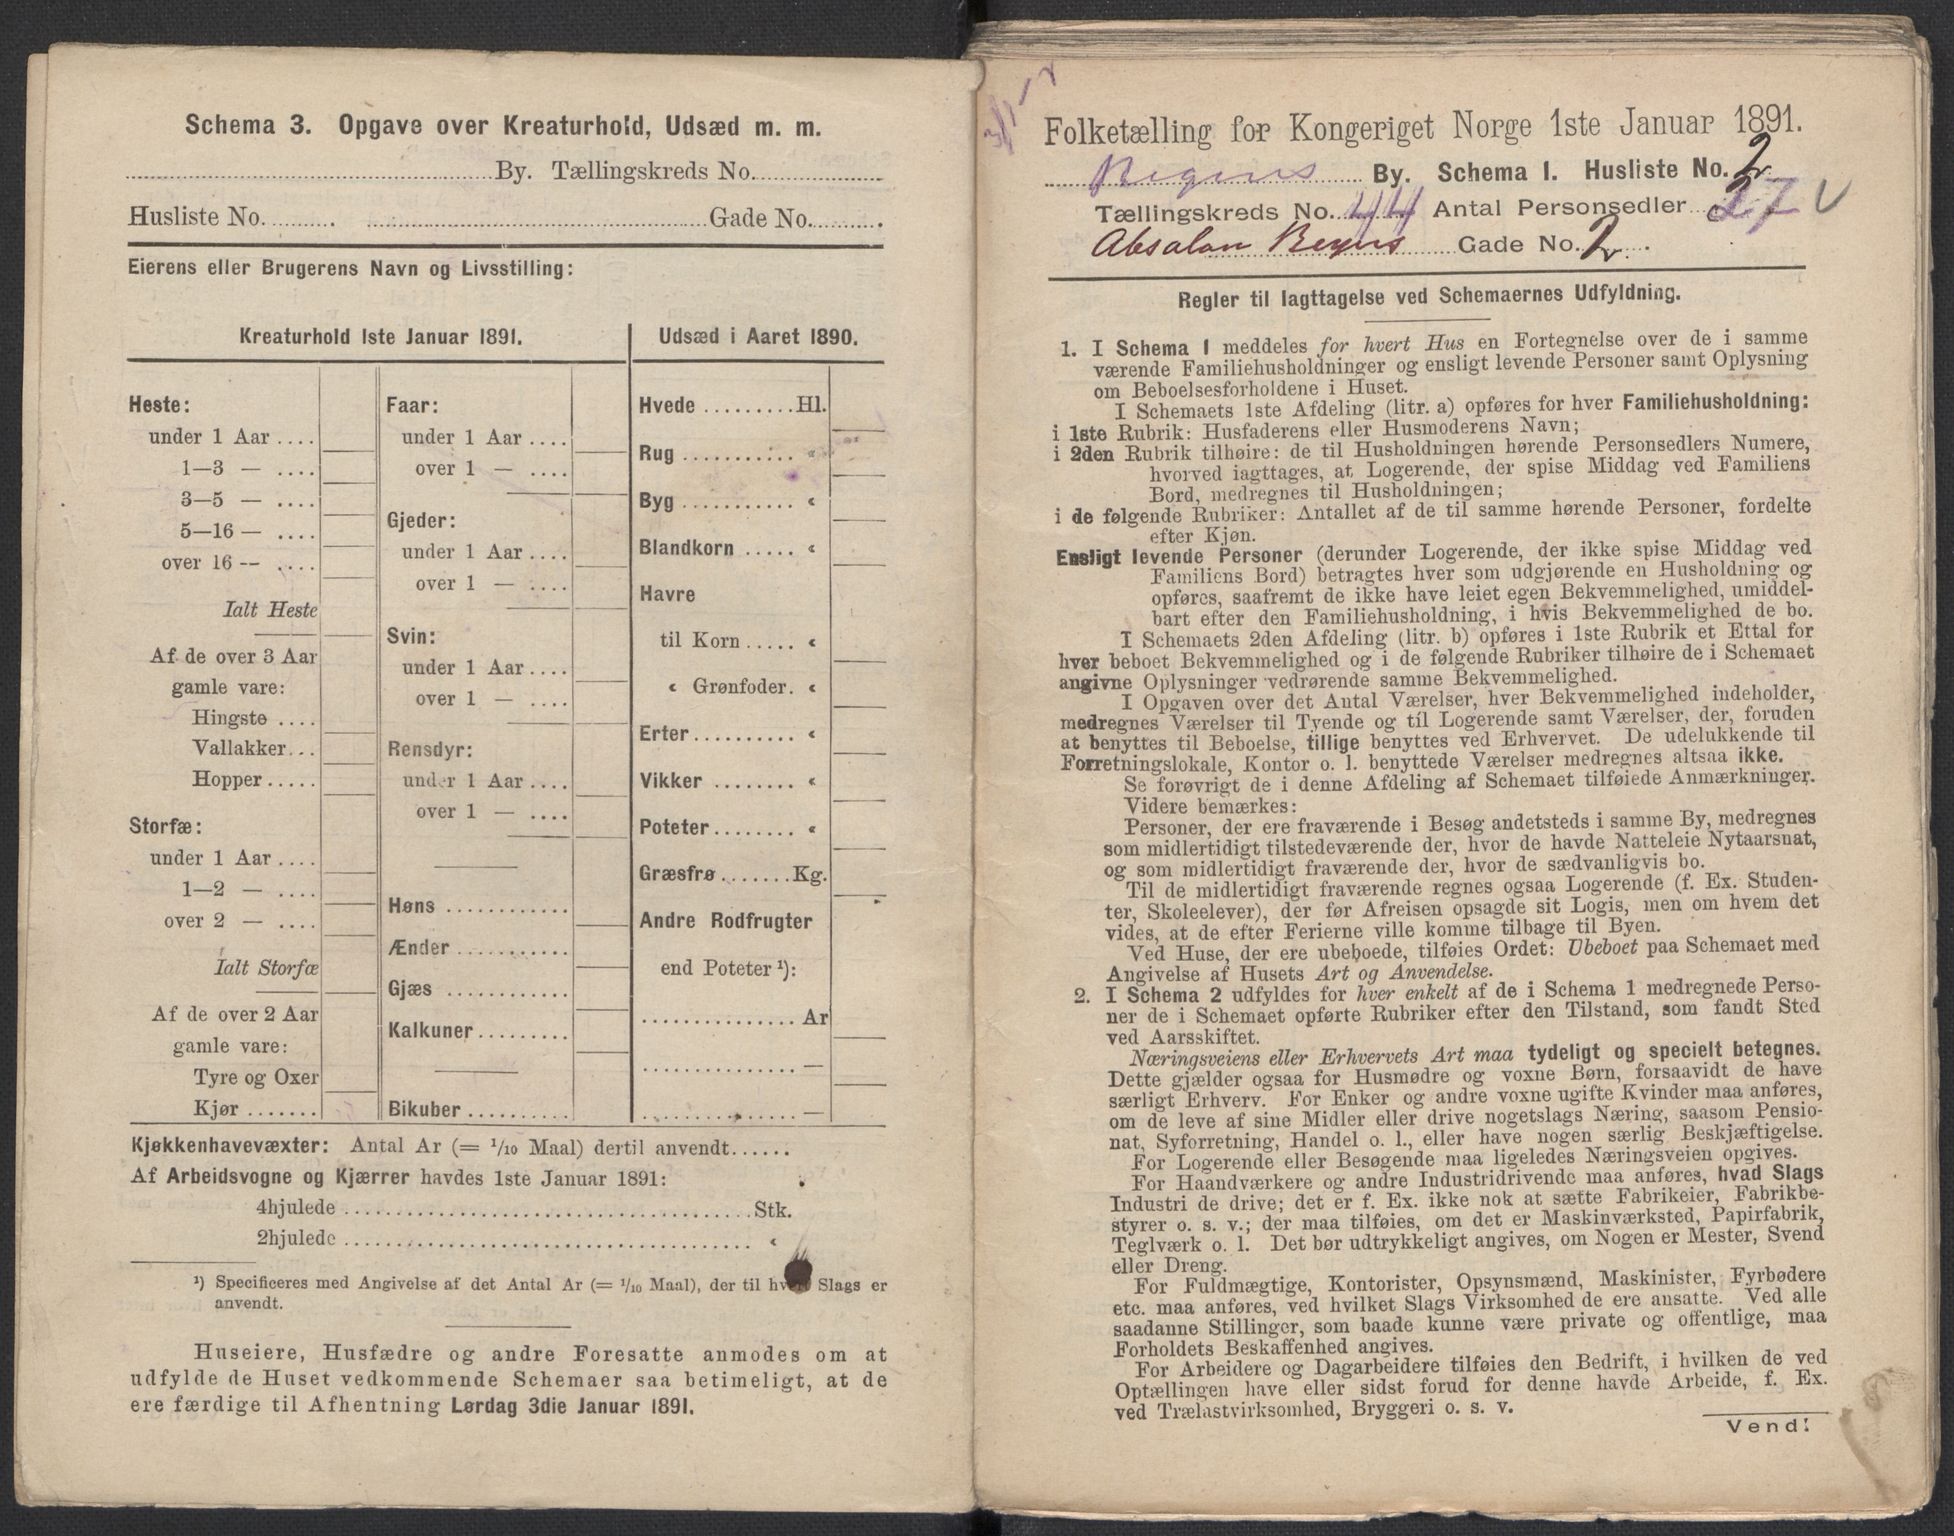 Schema 3. Opgave over Kreaturhold, Udsæd m. m.
By. Tællingskreds No.
Husliste No. Gade No.
Eierens eller Brugerens Navn og Livsstilling:
Kreaturhold 1ste Januar 1891.
Heste:
under 1 Aar....
1—3 — ....
3—5 — ....
5—16 — ....
over 16 -- ....
Ialt Heste
Af de over 3 Aar
gamle vare:
Hingste ....
Vallakker...
Hopper.....
Storfæ:
under 1 Aar....
1—2 — ....
over 2 — ....
Ialt Storfæ
Af de over 2 Aar
gamle vare:
Tyre og Oxer
Kjør.......
Faar:
under 1 Aar....
over 1 — ....
Gjeder:
under 1 Aar....
over 1 — ....
Svin:
under 1 Aar....
over 1 — ....
Rensdyr:
under 1 Aar....
over 1 — ....
Høns ............
Ænder ...........
Gjæs ............
Kalkuner.........
Bikuber ..........
Udsæd i Aaret 1890.
Hvede .........Hl.
Rug ........... «
Byg ........... «
Blandkorn ..... «
Havre
til Korn..... «
« Grønfoder. «
Erter.......... «
Vikker ........ «
Poteter........ «
Græsfrø.......Kg.
Andre Rodfrugter
end Poteter ¹):
............... Ar
............... —
............... —
Kjøkkenhavevæxter: Antal Ar (= 1/10 Maal) dertil anvendt......
Af Arbeidsvogne og Kjærrer havdes 1ste Januar 1891:
4hjulede .......................................Stk.
2hjulede ....................................... «
¹) Specificeres med Angivelse af det Antal Ar (= 1/10 Maal), der til hvert Slags er
anvendt.
Huseiere, Husfædre og andre Foresatte anmodes om at
udfylde de Huset vedkommende Schemaer saa betimeligt, at de
ere færdige til Afhentning Lørdag 3die Januar 1891.
Folketælling for Kongeriget Norge 1ste Januar 1891.
Bergens By. Schema 1. Husliste No. 2
Tællingskreds No. 44 Antal Personsedler 37
Absalon Beyers Gade No. 2.
Regler til Iagttagelse ved Schemaernes Udfyldning.
1. I Schema 1 meddeles for hvert Hus en Fortegnelse over de i samme
værende Familiehusholdninger og ensligt levende Personer samt Oplysning
om Beboelsesforholdene i Huset.
I Schemaets 1ste Afdeling (litr. a) opføres for hver Familiehusholdning:
i 1ste Rubrik: Husfaderens eller Husmoderens Navn;
i 2den Rubrik tilhøire: de til Husholdningen hørende Personsedlers Numere,
hvorved iagttages, at Logerende, der spise Middag ved Familiens
Bord, medregnes til Husholdningen;
i de følgende Rubriker: Antallet af de til samme hørende Personer, fordelte
efter Kjøn.
Ensligt levende Personer (derunder Logerende, der ikke spise Middag ved
Familiens Bord) betragtes hver som udgjørende en Husholdning og
opføres, saafremt de ikke have leiet egen Bekvemmelighed, umiddel-
bart efter den Familiehusholdning, i hvis Bekvemmelighed de bo.
I Schemaets 2den Afdeling (litr. b) opføres i 1ste Rubrik et Ettal for
hver beboet Bekvemmelighed og i de følgende Rubriker tilhøire de i Schemaet
angivne Oplysninger vedrørende samme Bekvemmelighed.
I Opgaven over det Antal Værelser, hver Bekvemmelighed indeholder,
medregnes Værelser til Tyende og til Logerende samt Værelser, der, foruden
at benyttes til Beboelse, tillige benyttes ved Erhvervet. De udelukkende til
Forretningslokale, Kontor o. l. benyttede Værelser medregnes altsaa ikke.
Se forøvrigt de i denne Afdeling af Schemaet tilføiede Anmærkninger.
Videre bemærkes:
Personer, der ere fraværende i Besøg andetsteds i samme By, medregnes
som midlertidigt tilstedeværende der, hvor de havde Natteleie Nytaarsnat,
og som midlertidigt fraværende der, hvor de sædvanligvis bo.
Til de midlertidigt fraværende regnes ogsaa Logerende (f. Ex. Studen-
ter, Skoleelever), der før Afreisen opsagde sit Logis, men om hvem det
vides, at de efter Ferierne ville komme tilbage til Byen.
Ved Huse, der ere ubeboede, tilføies Ordet: Ubeboet paa Schemaet med
Angivelse af Husets Art og Anvendelse.
2. I Schema 2 udfyldes for hver enkelt af de i Schema 1 medregnede Perso-
ner de i Schemaet opførte Rubriker efter den Tilstand, som fandt Sted
ved Aarsskiftet.
Næringsveiens eller Erhvervets Art maa tydeligt og specielt betegnes.
Dette gjælder ogsaa for Husmødre og voxne Børn, forsaavidt de have
særligt Erhverv. For Enker og andre voxne ugifte Kvinder maa anføres,
om de leve af sine Midler eller drive nogetslags Næring, saasom Pensio-
nat, Syforretning, Handel o. l., eller have nogen særlig Beskjæftigelse.
For Logerende eller Besøgende maa ligeledes Næringsveien opgives.
For Haandværkere og andre Industridrivende maa anføres, hvad Slags
Industri de drive; det er f. Ex. ikke nok at sætte Fabrikeier, Fabrikbe-
styrer o. s. v.; der maa tilføies, om det er Maskinværksted, Papirfabrik,
Teglværk o. l. Det bør udtrykkeligt angives, om Nogen er Mester, Svend
eller Dreng.
For Fuldmægtige, Kontorister, Opsynsmænd, Maskinister, Fyrbødere
etc. maa anføres, ved hvilket Slags Virksomhed de ere ansatte. Ved alle
saadanne Stillinger, som baade kunne være private og offentlige, maa
Forholdets Beskaffenhed angives.
For Arbeidere og Dagarbeidere tilføies den Bedrift, i hvilken de ved
Optællingen have eller sidst forud for denne havde Arbeide, f. Ex.
ved Trælastvirksomhed, Bryggeri o. s. v.
Vend!